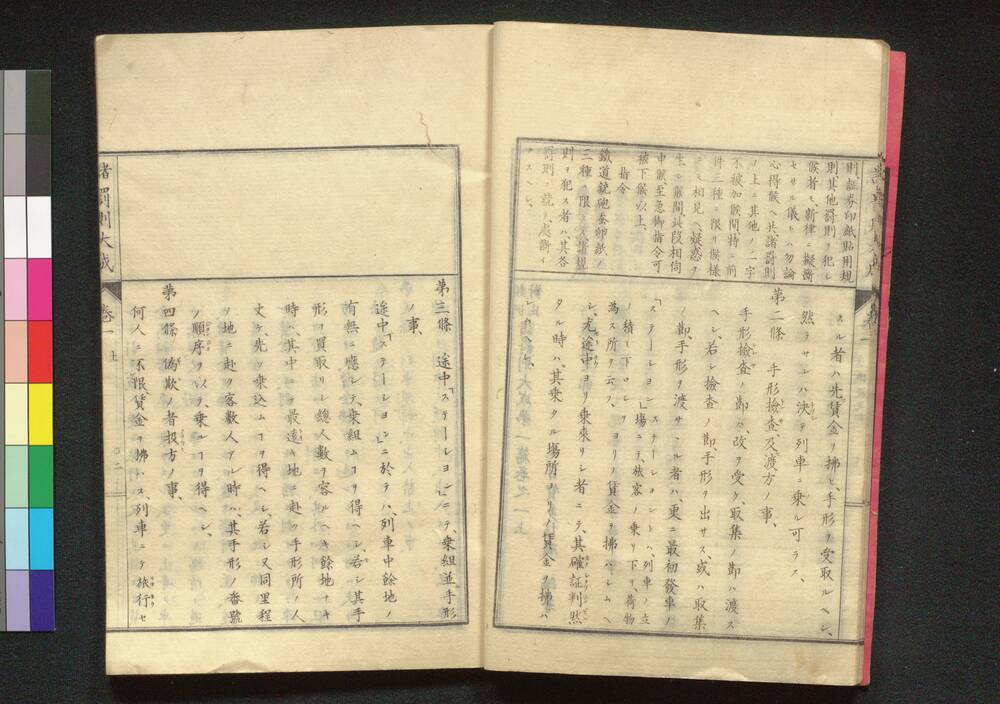 則、証券印紙貼用規
則其他罰則ヲ犯シ
候者モ、新律ニ擬断
セサル儀トハ勿論
心得候ヘ共、諸罰則
ノ上ニ其他ノ二字
不被加候間、特ニ前
件三種ニ限リ候様
ニモ相見ヘ、疑惑ヲ
生シ候間、此段相伺
申候、至急御指令可
被下候以上、
指令
鐵道銃砲蚕卵紙ノ
三種ニ限ラス、諸規
則ヲ犯ス者ハ、其各
罰則ニ就テ、處断イ
タスヘシ、
スル者ハ先賃金ヲ拂ヒ、手形ヲ受取ルヘシ、
然ラサレハ決テ列車ニ乗ル可ラス、
第二條 手形檢査及渡方ノ事、
手形檢査ノ節ハ、改ヲ受ケ、取集ノ節ハ渡ス
ヘシ、若シ檢査ノ節、手形ヲ出サス、或ハ取集
ノ節、手形ヲ渡サヽル者ハ、更ニ最初發車ノ
「ステーション」ステーションハ、列車ノ立
場ニテ、旅客ノ乗リ下リ、荷物
ノ積ミ下ロシヲ
為ス所ヲ云フ、ヨリノ賃金ヲ拂ハシムヘ
シ、尤途中ヨリ乗来リシ者ニテ、其確証判然
タル時ハ、其乗タル場所ヨリノ賃金ヲ拂ハ
スヘシ、
諸罰則大成 巻一 上 〇二
第三條 途中「ステーション」ニテ、乗組並手形
ノ事、
途中「ステーション」ニ於テハ、列車中餘地ノ
有無ニ應シテ、乗組ムコヲ得ヘシ、若シ其手
形ヲ買取リシ総人数ヲ容ルヘキ餘地ナキ
時ハ、其中ニテ最遠キ地ニ赴ク手形所ノ人
丈ケ、先ツ乗込ムコヲ得ヘシ、若シ又同里程
ノ地ニ赴ク客數人アレシ時ハ、其手形ノ番號
ノ順序ヲ以テ、乗ルコヲ得ヘシ、
第四條 偽欺ノ者扱方ノ事、
何人ニ不限賃金ヲ拂ハス、列車ニテ旅行セ